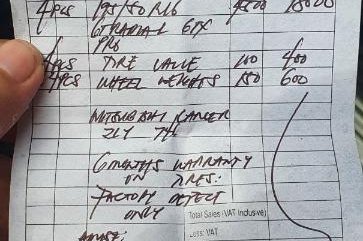 4 PCS 195/50 R16 4500 18000
GT RADIAL GTX
PRO
4 PCS TIRE VALVE 100 400
4 PCS WHEEL WEIGHTS 150 600
MITSUBISHI LANCER
6 MONTHS WARRANTY
ON TIRES.
FACTORY DEFECT
ONLY
Total Sales (VAT Inclusive)
Less: VAT